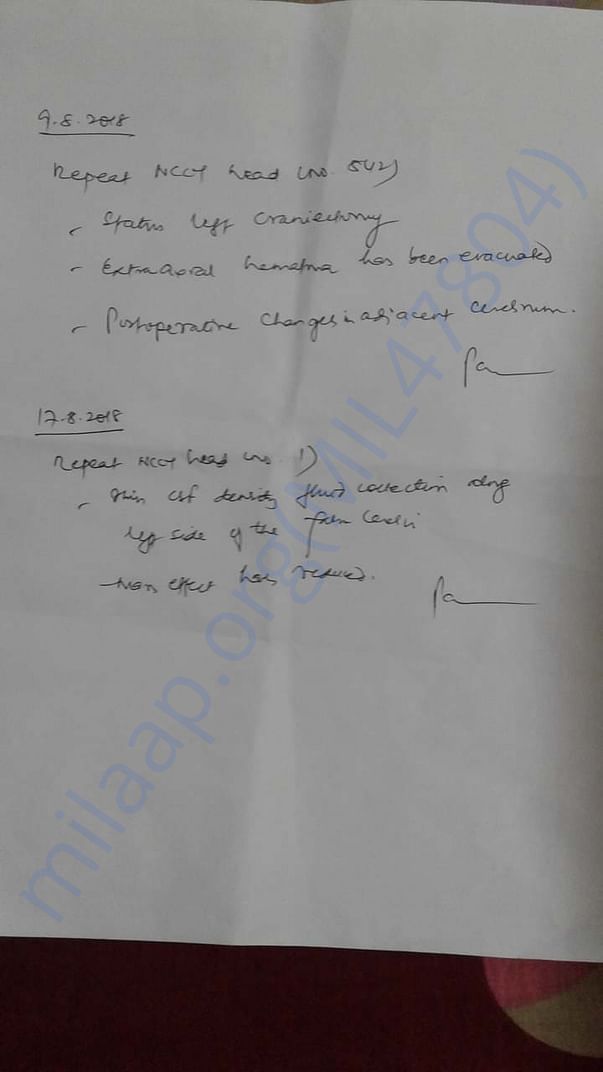 9.8.2018
Repeat NCCT head (no. 542)
- Status left craniectomy
- Extradural hematoma has been evacuated
- Postoperative changes in adjacent cerebrum.
17.8.2018
Repeat NCCT head (no. 1)
- Thin CSF density fluid collection along
left side of the falx cerebri
- Mass effect has reduced.
milaap.org(MIL47804)